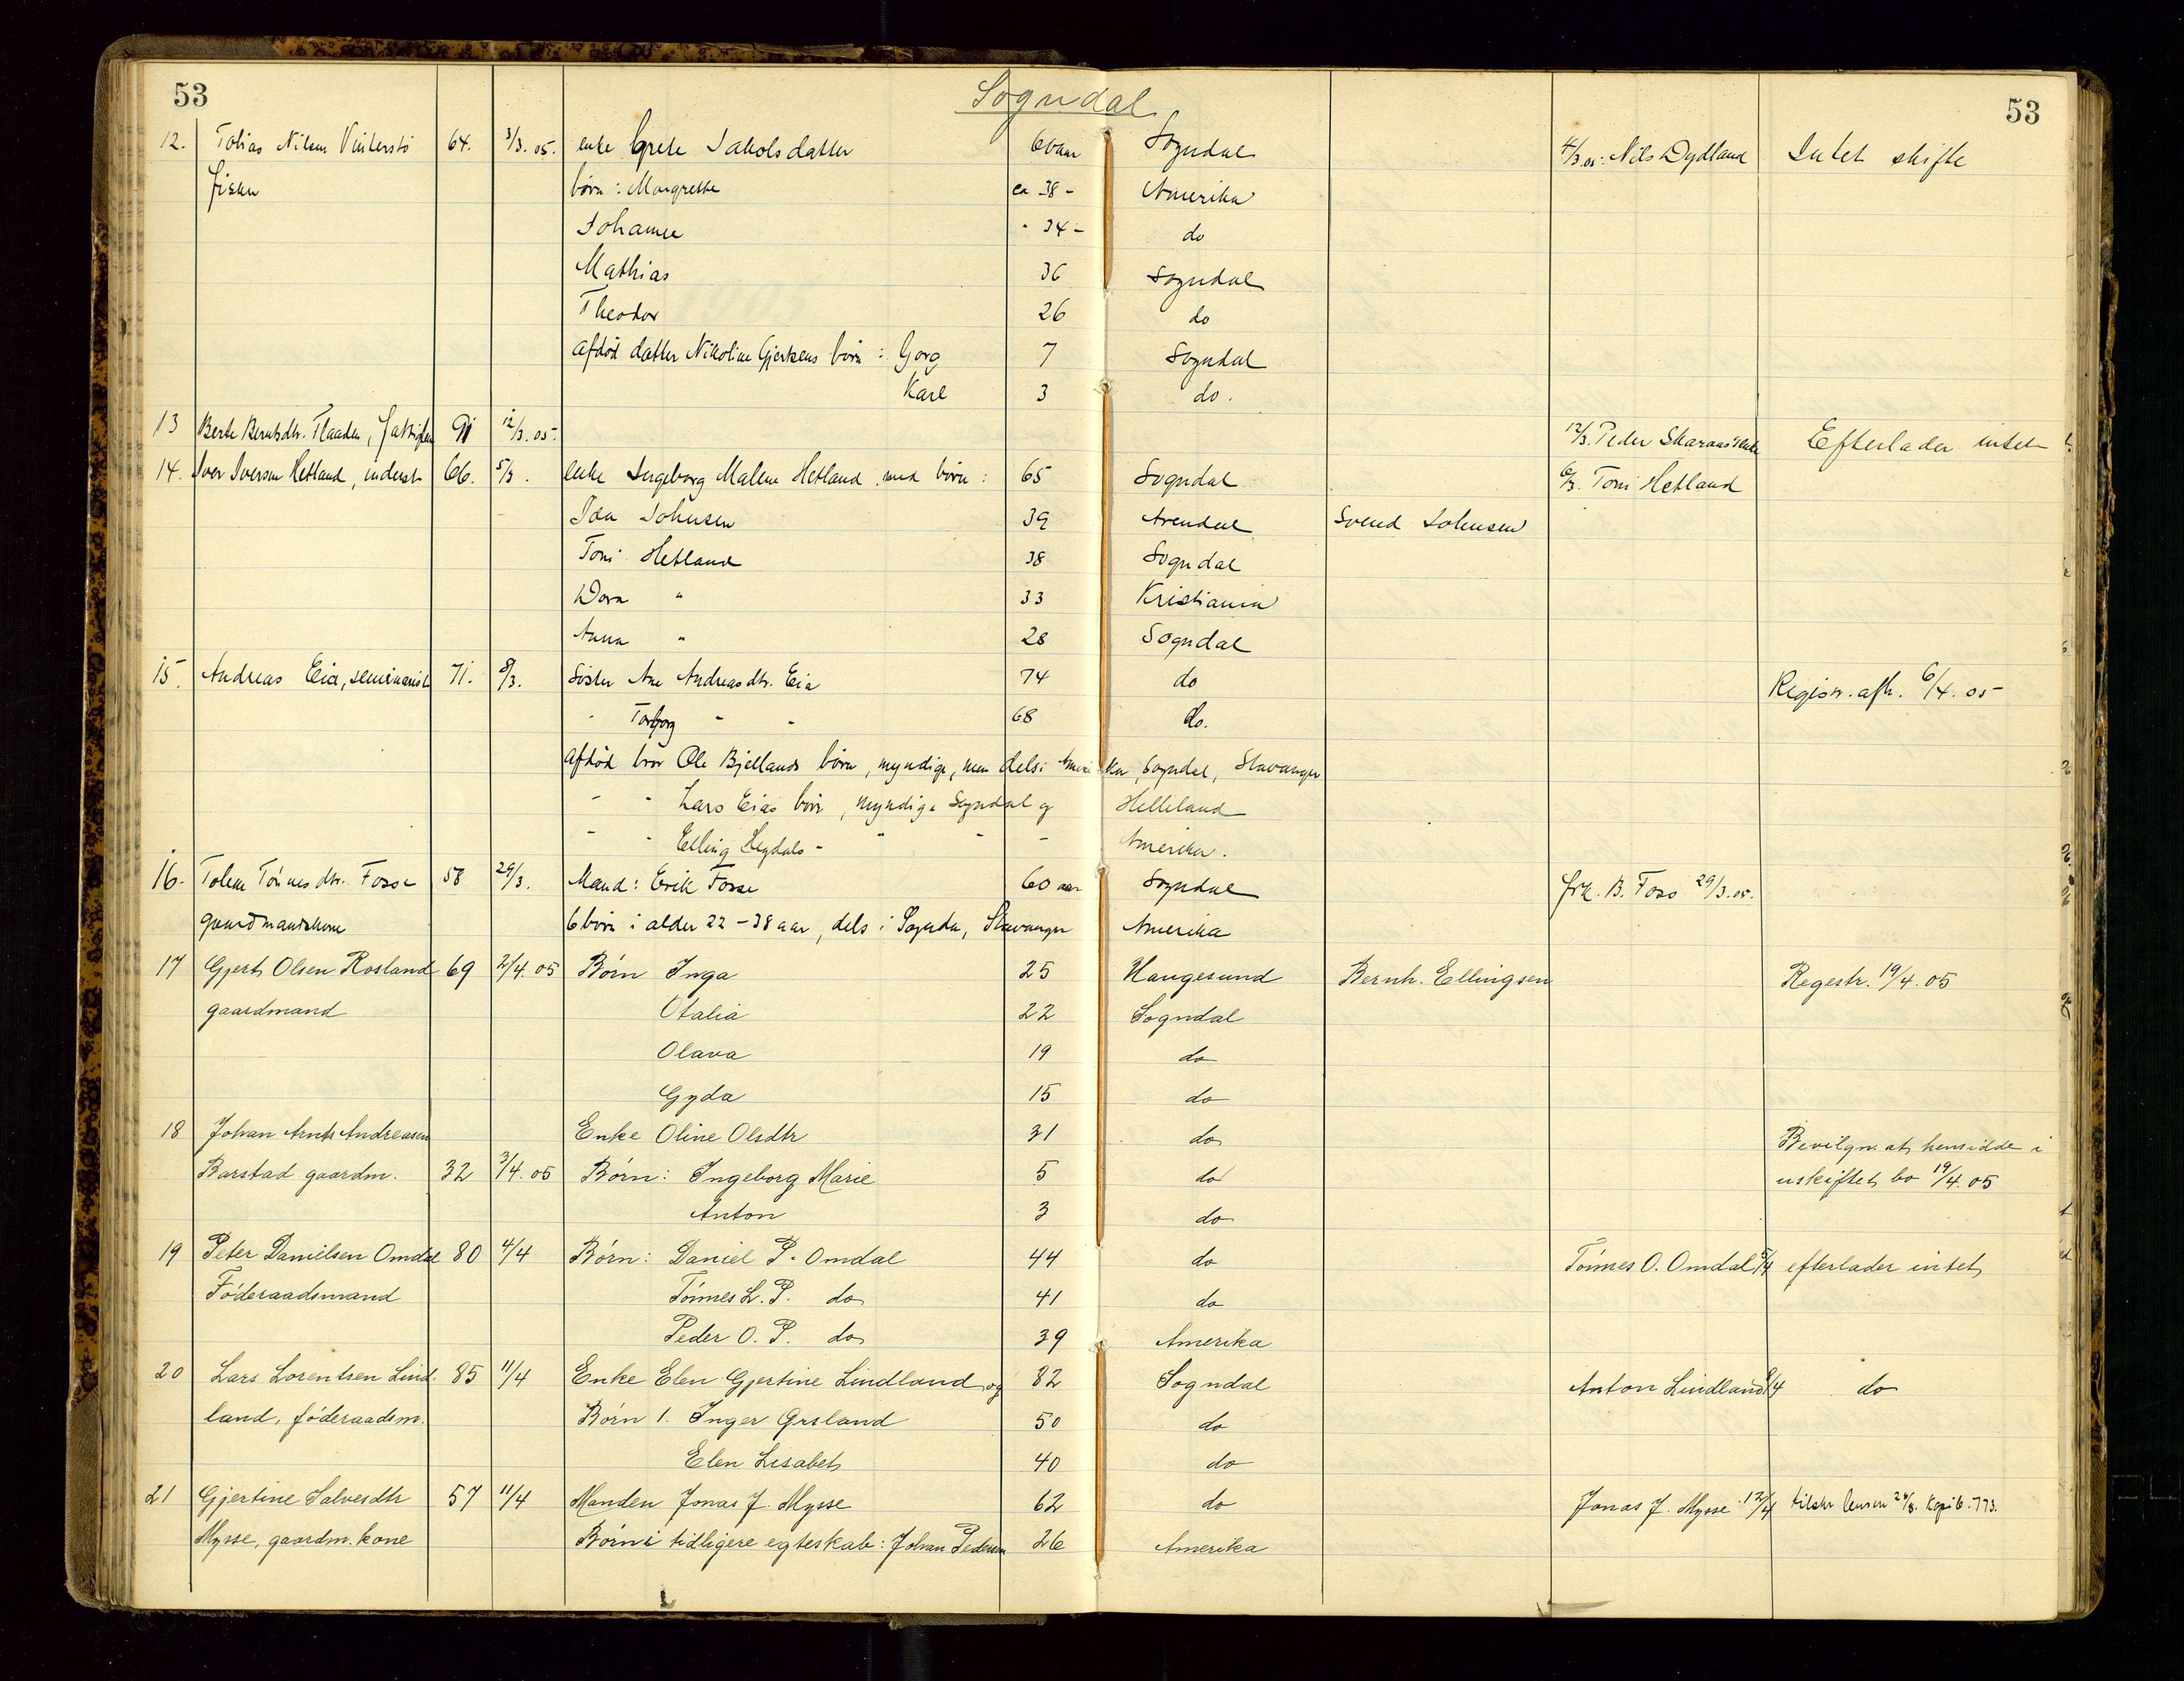 53
Sogndal
53
12. Tobias Nilsen Vinterstø 64. 3/3. 05. enke Grete Jakobsdatter 60 aar Sogndal 4/3.05: Nils Dydland Intet skifte
fisker børn: Margrethe ca 38 - Amerika
Johanne - 34 - do
Mathias 36 Sogndal
Theodor 26 do
afdød datter Nikoline Gjertsens børn: Georg 7 Sogndal
Karl 3 do.
13 Berte Berntsdtr. Flaaden, fattiglem 91 12/3. 05. 12/3. Peder Skaraas Efterlader intet
14. Iver Iversen Hetland, inderst 66. 5/3. enke Ingeborg Malene Hetland med børn: 65 Sogndal 6/3. Toni Hetland
Ida Johnsen 39 Arendal Svend Johnsen
Toni Hetland 38 Sogndal
Dora " 33 Kristiania
Anna " 28 Sogndal
15. Andreas Eia, seminarist 71. 8/3. Søster Ane Andreasdtr. Eia 74 do Registr. afh. 6/4. 05
- Torborg - - 68 do.
Afdød bror Ole Bjellands børn, myndige, men dels i Amerika, Sogndal, Stavanger
- - Lars Eias børn, myndige Sogndal og Helleland
- - Elling Hegdals - " - - Amerika.
16. Tolene Tønnesdtr. Fosse 58 29/3. Mand: Erik Fosse 60 aar Sogndal frk. B. Foss 29/3.05.
gaardmandskone 6 børn i alder 22 - 38 aar, dels i Sogndal, Stavanger Amerika
17 Gjert Olsen Rosland 69 2/4. 05 Børn Inga 25 Haugesund Bernh. Ellingsen Regestr. 19/4. 05
gaardmand Otalia 22 Sogndal
Olava 19 do
Gyda 15 do
18 Johan Arnts Andreasen Enke Oline Olsdtr 31 do Bevilgn. at hensidde i
Barstad gaardm. 32 3/4. 05 Børn: Ingeborg Marie 5 do uskiftet bo 19/4. 05
Anton 3 do
19 Peter Danielsen Omdal 80 4/4 Børn: Daniel P. Omdal 44 do Tønnes O. Omdal 5/4 efterlader intet
Føderaadsmand Tønnes L. P. do 41 do
Peder O. P. do 39 Amerika
20 Lars Lorentsen Lind- 85 11/4 Enke Elen Gjertine Lindland og 82 Sogndal Anton Lindland /4 do
land, føderaadsm. Børn 1. Inger Ørsland 50 do
Elen Lisabet 40 do
21 Gjertine Salvesdtr 57 11/4 Manden Jonas J. Mysse 62 do Jonas J. Mysse 12/4 tilskr lensm 24/8. Kopib. 773.
Mysse, gaardm. kone Børn i tidligere egteskab: Johan Pedersen 26 Amerika